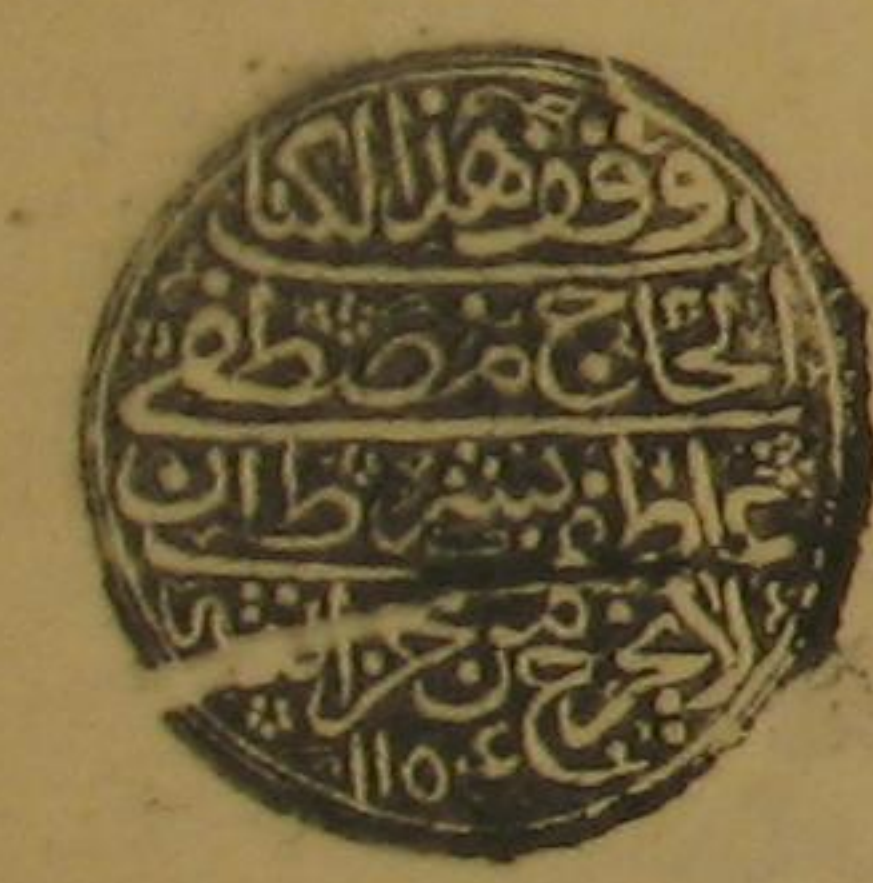 وقف هذا الكتاب
الحاج مصطفى
عاطف بشرط ان
لا يخرج من خزانته
١١٥٤